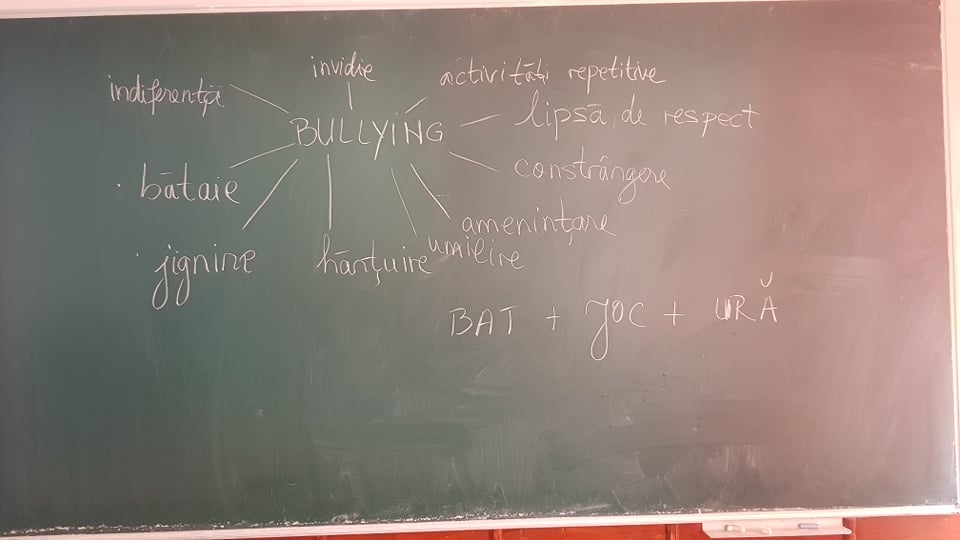 invidie
activități repetitive
indiferență
lipsă de respect
BULLYiNG
constrângere
bătaie
amenințare
jignire
hărțuire
umilire
BAT + JOC + URĂ